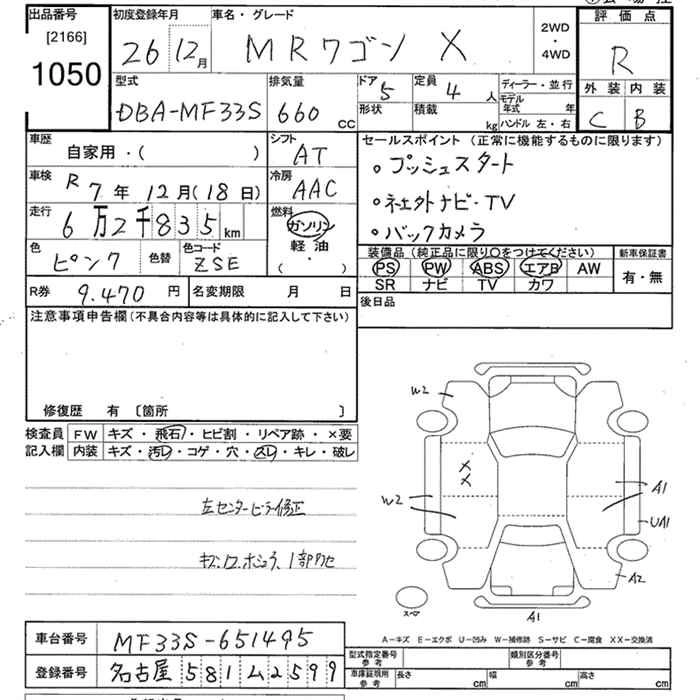 出品番号 初度登録年月 車名・グレード 評価点
[2166] 26 12月 MRワゴン X 2WD・4WD R
1050
型式 排気量 ドア 定員 ディーラー・並行 外装 内装
DBA-MF33S 660 cc 5 4人 モデル年式 年 C B
形状 積載 kg ハンドル 左・右
車歴 シフト セールスポイント (正常に機能するものに限ります)
自家用・( ) AT 。プッシュスタート
車検 R 7年 12月(18日) 冷房 AAC 。社外ナビ・TV
走行 6万2千835km 燃料 ガソリン 軽油・( ) 。バックカメラ
色 ピンク 色替 色コード ZSE
装備品 (純正品に限り〇をつけてください) 新車保証書
PS PW ABS エアB AW 有・無
SR ナビ TV カワ
R券 9.470円 名変期限 月 日 後日品
注意事項申告欄(不具合内容等は具体的に記入して下さい)
修復歴 有 〔箇所 〕
検査員 FW キズ・飛石・ヒビ割・リペア跡・×要
記入欄 内装 キズ・汚レ・コゲ・穴・スレ・キレ・破レ
左センターピラー修正
W2
XX
W2
A1
UA1
A2
スペア
A1
A-キズ E-エクボ U-凹み W-補修跡 S-サビ C-腐食 XX-交換済
車台番号 MF33S-651495
登録番号 名古屋 581 ム 2599
型式指定番号 参考 類別区分番号 参考
車庫証明用 参考 長さ cm 幅 cm 高さ cm